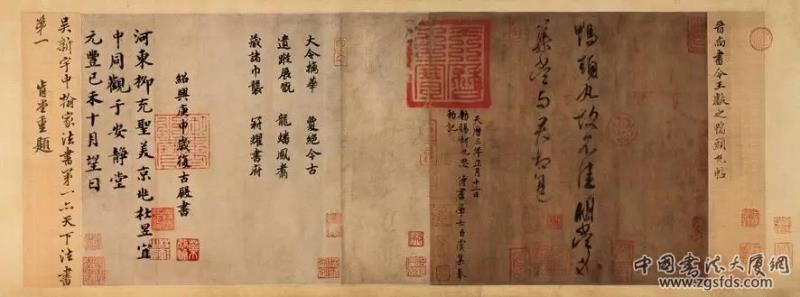 晉尚書令王獻之鴨頭丸帖
鴨頭丸故不佳明當必
集當與君相見
天曆之寶
天曆三年正月十二日
敕賜柯九思侍書學士臣虞集奉
敕記
大令摛華 夐絕今古
遺蹤展玩 龍蟠鳳翥
藏諸巾襲 冠耀書府
紹興庚申歲復古殿書
河東柳充聖美京兆杜昱宜
中同觀于安靜堂
元豐己未十月望日
吳新宇中翰家法書第一亦天下法書
第一 肯堂重題
中國书法大厦網
www.zgsfds.com